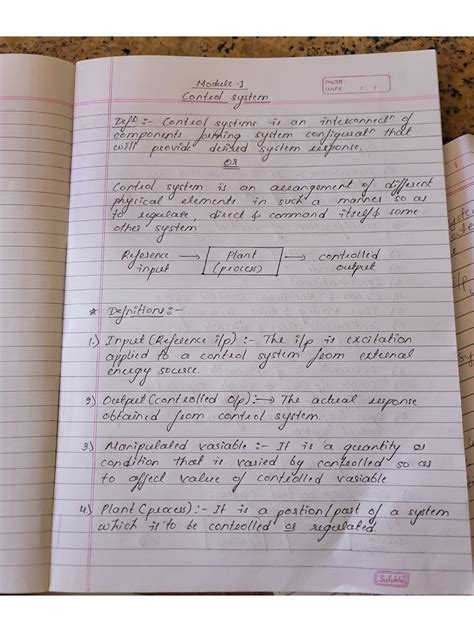 Module-1
Control system
PAGE:
DATE: / /
Defn :- Control systems is an interconnectn of
components forming system configuratn that
will provide desired system response.
OR
Control system is an arrangement of different
physical elements in such a manner so as
to regulate, direct & command itself & some
other system
Reference → Plant → controlled
input (process) output
* Definitions :-
1.) Input (Reference i/p) :- The i/p is excitation
applied to a control system from external
energy source.
2) Output (controlled o/p) :→ The actual response
obtained from control system.
3) Manipulated variable :- It is a quantity or
condition that is varied by controlled so as
to affect value of controlled variable
4.) Plant (process) :- It is a portion/part of a system
which is to be controlled or regulated.